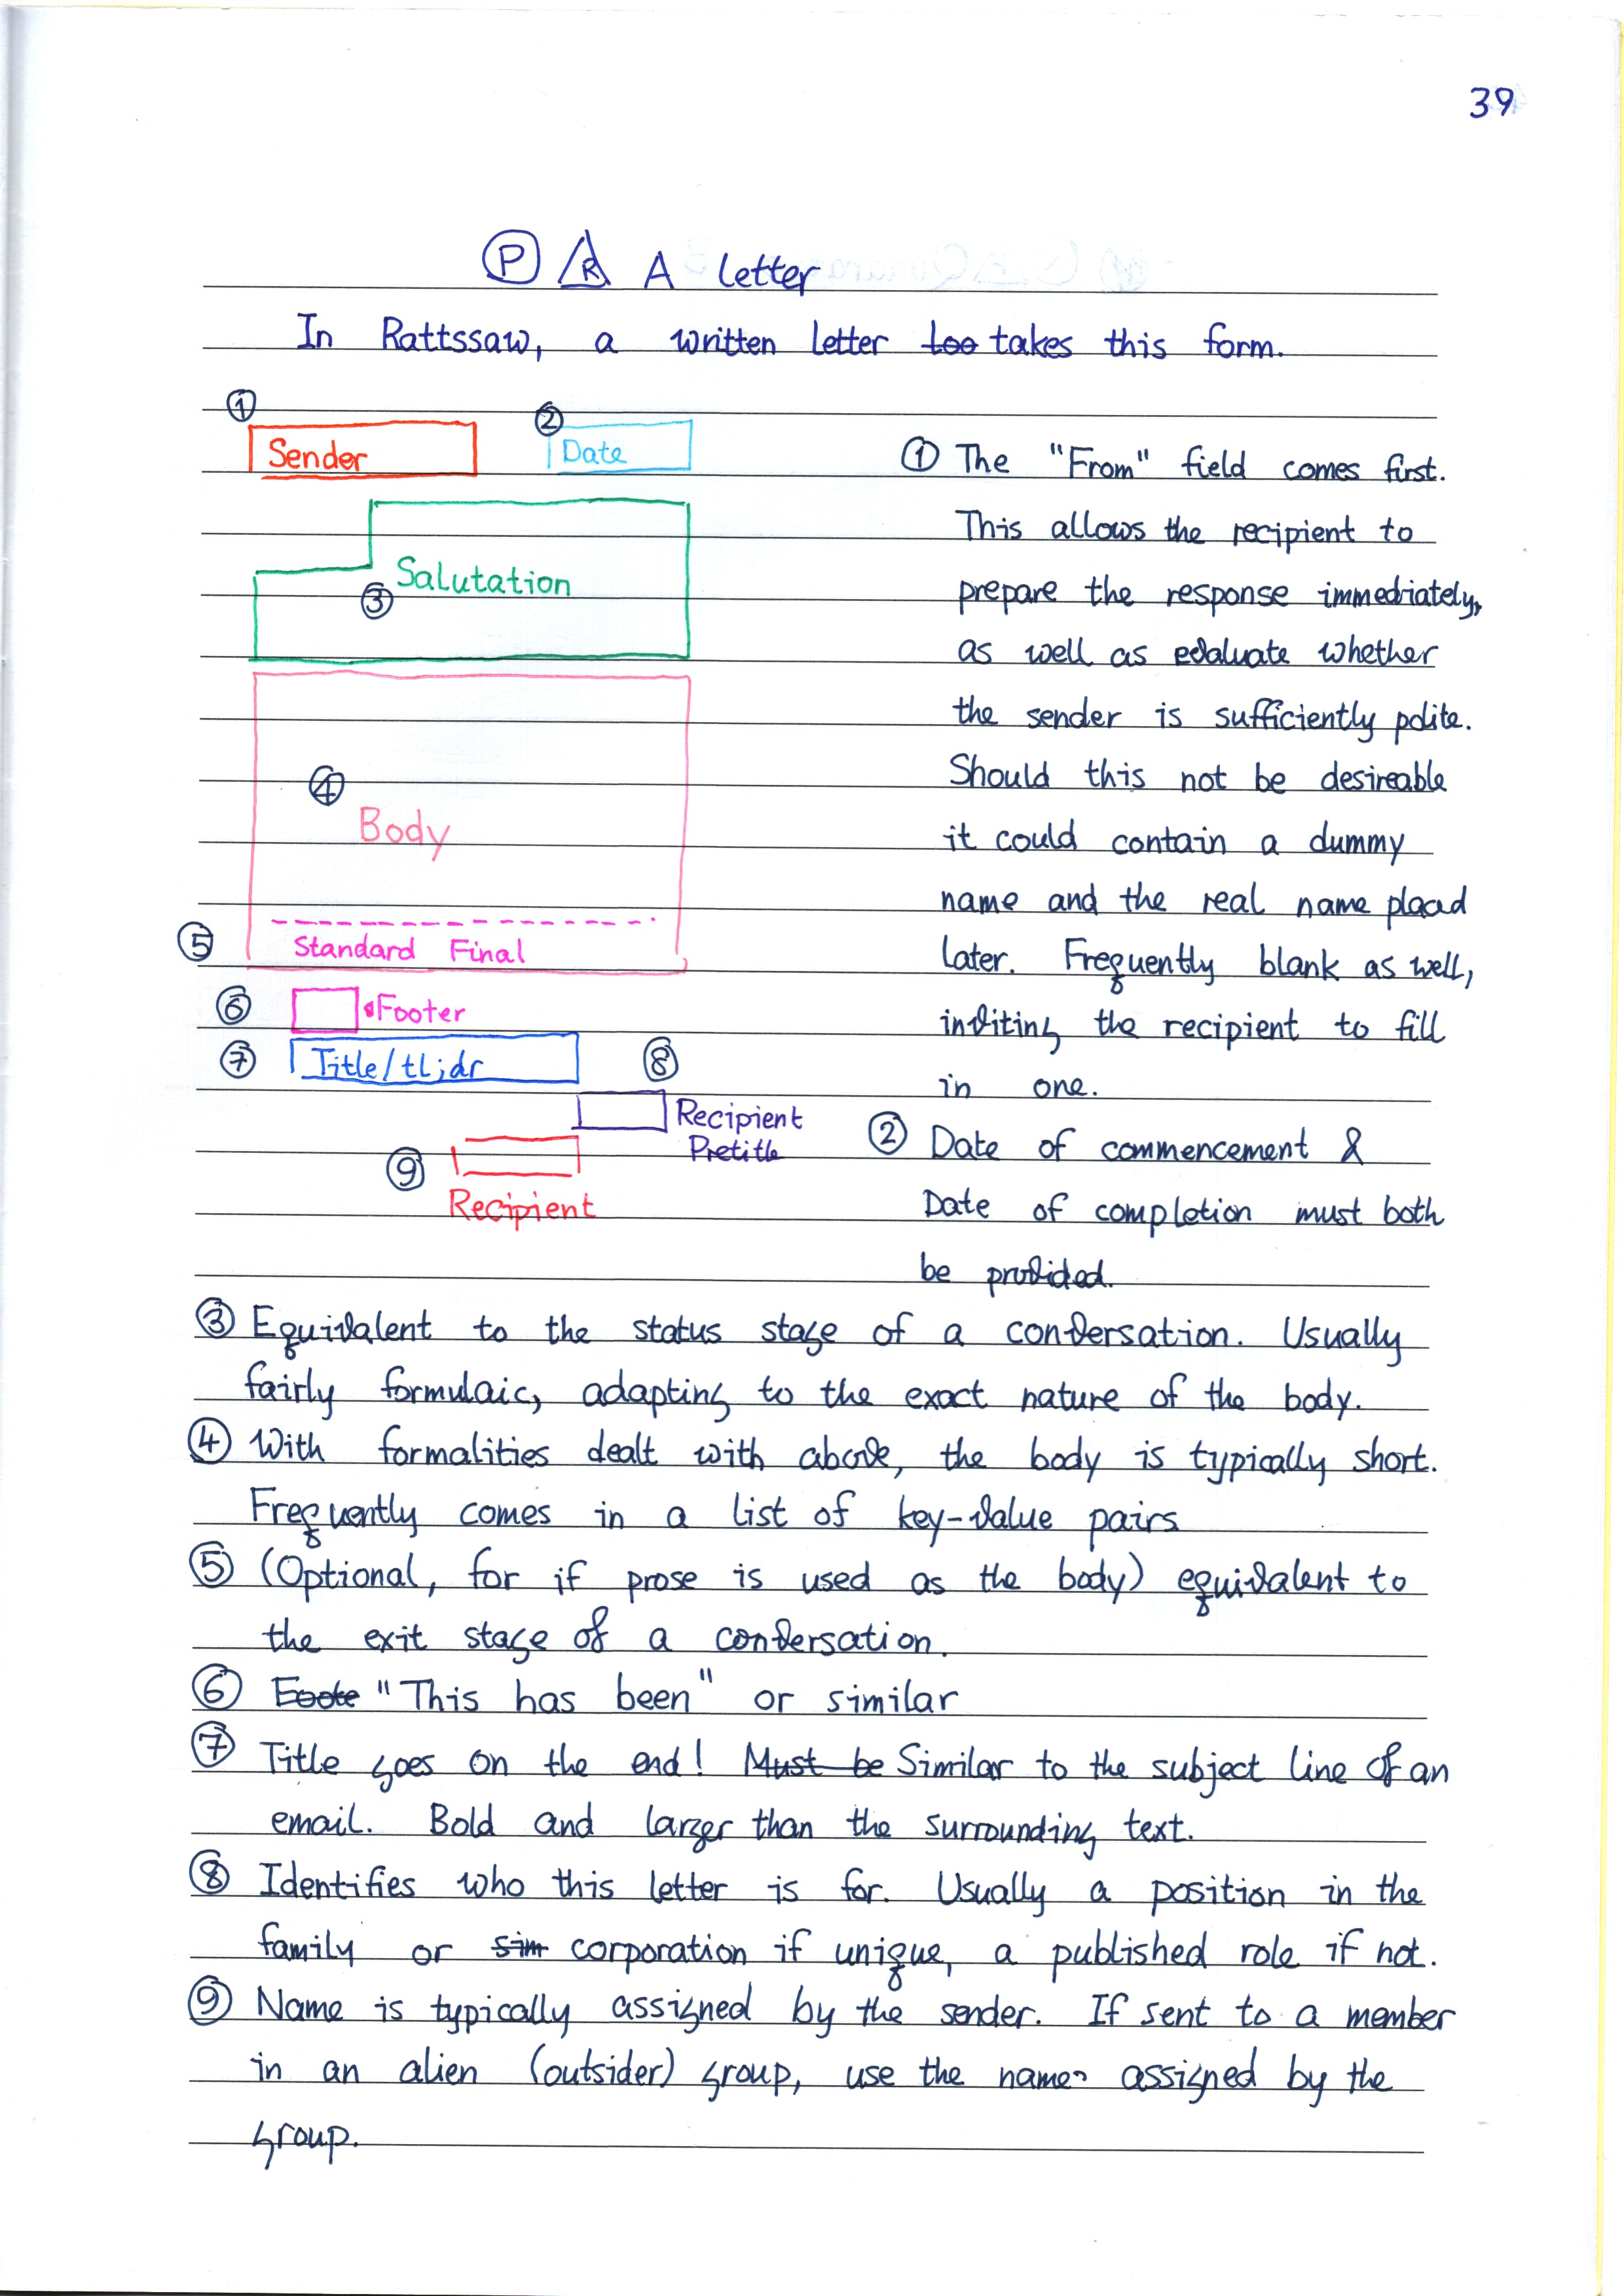 39
Ⓟ R A letter
In Rattssaw, a written letter too takes this form.
①
Sender
②
Date
Salutation
③
④
Body
⑤ Standard Final
⑥ Footer
⑦ Title/tl;dr
⑧
Recipient
Pretitle
⑨
Recipient
① The "From" field comes first.
This allows the recipient to
prepare the response immediately,
as well as evaluate whether
the sender is sufficiently polite.
Should this not be desireable
it could contain a dummy
name and the real name placed
later. Frequently blank as well,
inviting the recipient to fill
in one.
② Date of commencement &
Date of completion must both
be provided.
③ Equivalent to the status stage of a conversation. Usually
fairly formulaic, adapting to the exact nature of the body.
④ With formalities dealt with above, the body is typically short.
Frequently comes in a list of key-value pairs
⑤ (Optional, for if prose is used as the body) equivalent to
the exit stage of a conversation.
⑥ Foote "This has been" or similar
⑦ Title goes on the end! Must be Similar to the subject line of an
email. Bold and larger than the surrounding text.
⑧ Identifies who this letter is for. Usually a position in the
family or sim corporation if unique, a published role if not.
⑨ Name is typically assigned by the sender. If sent to a member
in an alien (outsider) group, use the name assigned by the
group.